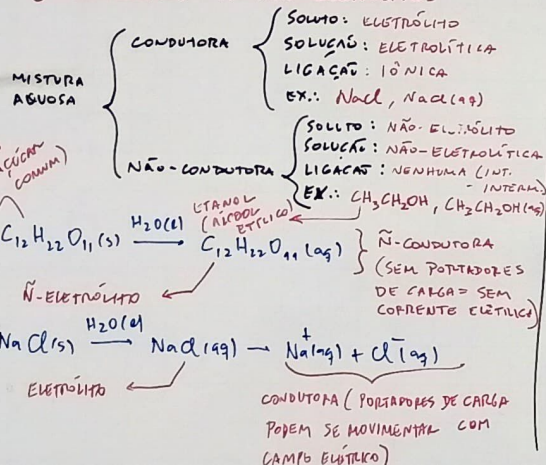 MISTURA
AQUOSA
CONDUTORA
SOLUTO: ELETRÓLITO
SOLUÇÃO: ELETROLÍTICA
LIGAÇÃO: IÔNICA
EX.: NaCl, NaCl(aq)
NÃO-CONDUTORA
SOLUTO: NÃO-ELETRÓLITO
SOLUÇÃO: NÃO-ELETROLÍTICA
LIGAÇÃO: NENHUMA (INT.
INTERM)
EX.: CH3CH2OH, CH3CH2OH(aq)
AÇÚCAR
COMUM)
ETANOL
(ÁLCOOL
ETÍLICO)
C12H22O11(s) H2O(l) → C12H22O11(aq)
Ñ-CONDUTORA
(SEM PORTADORES
DE CARGA = SEM
CORRENTE ELÉTRICA)
Ñ-ELETRÓLITO
NaCl(s) H2O(l) → NaCl(aq) → Na+(aq) + Cl-(aq)
ELETRÓLITO
CONDUTORA (PORTADORES DE CARGA
PODEM SE MOVIMENTAR COM
CAMPO ELÉTRICO)